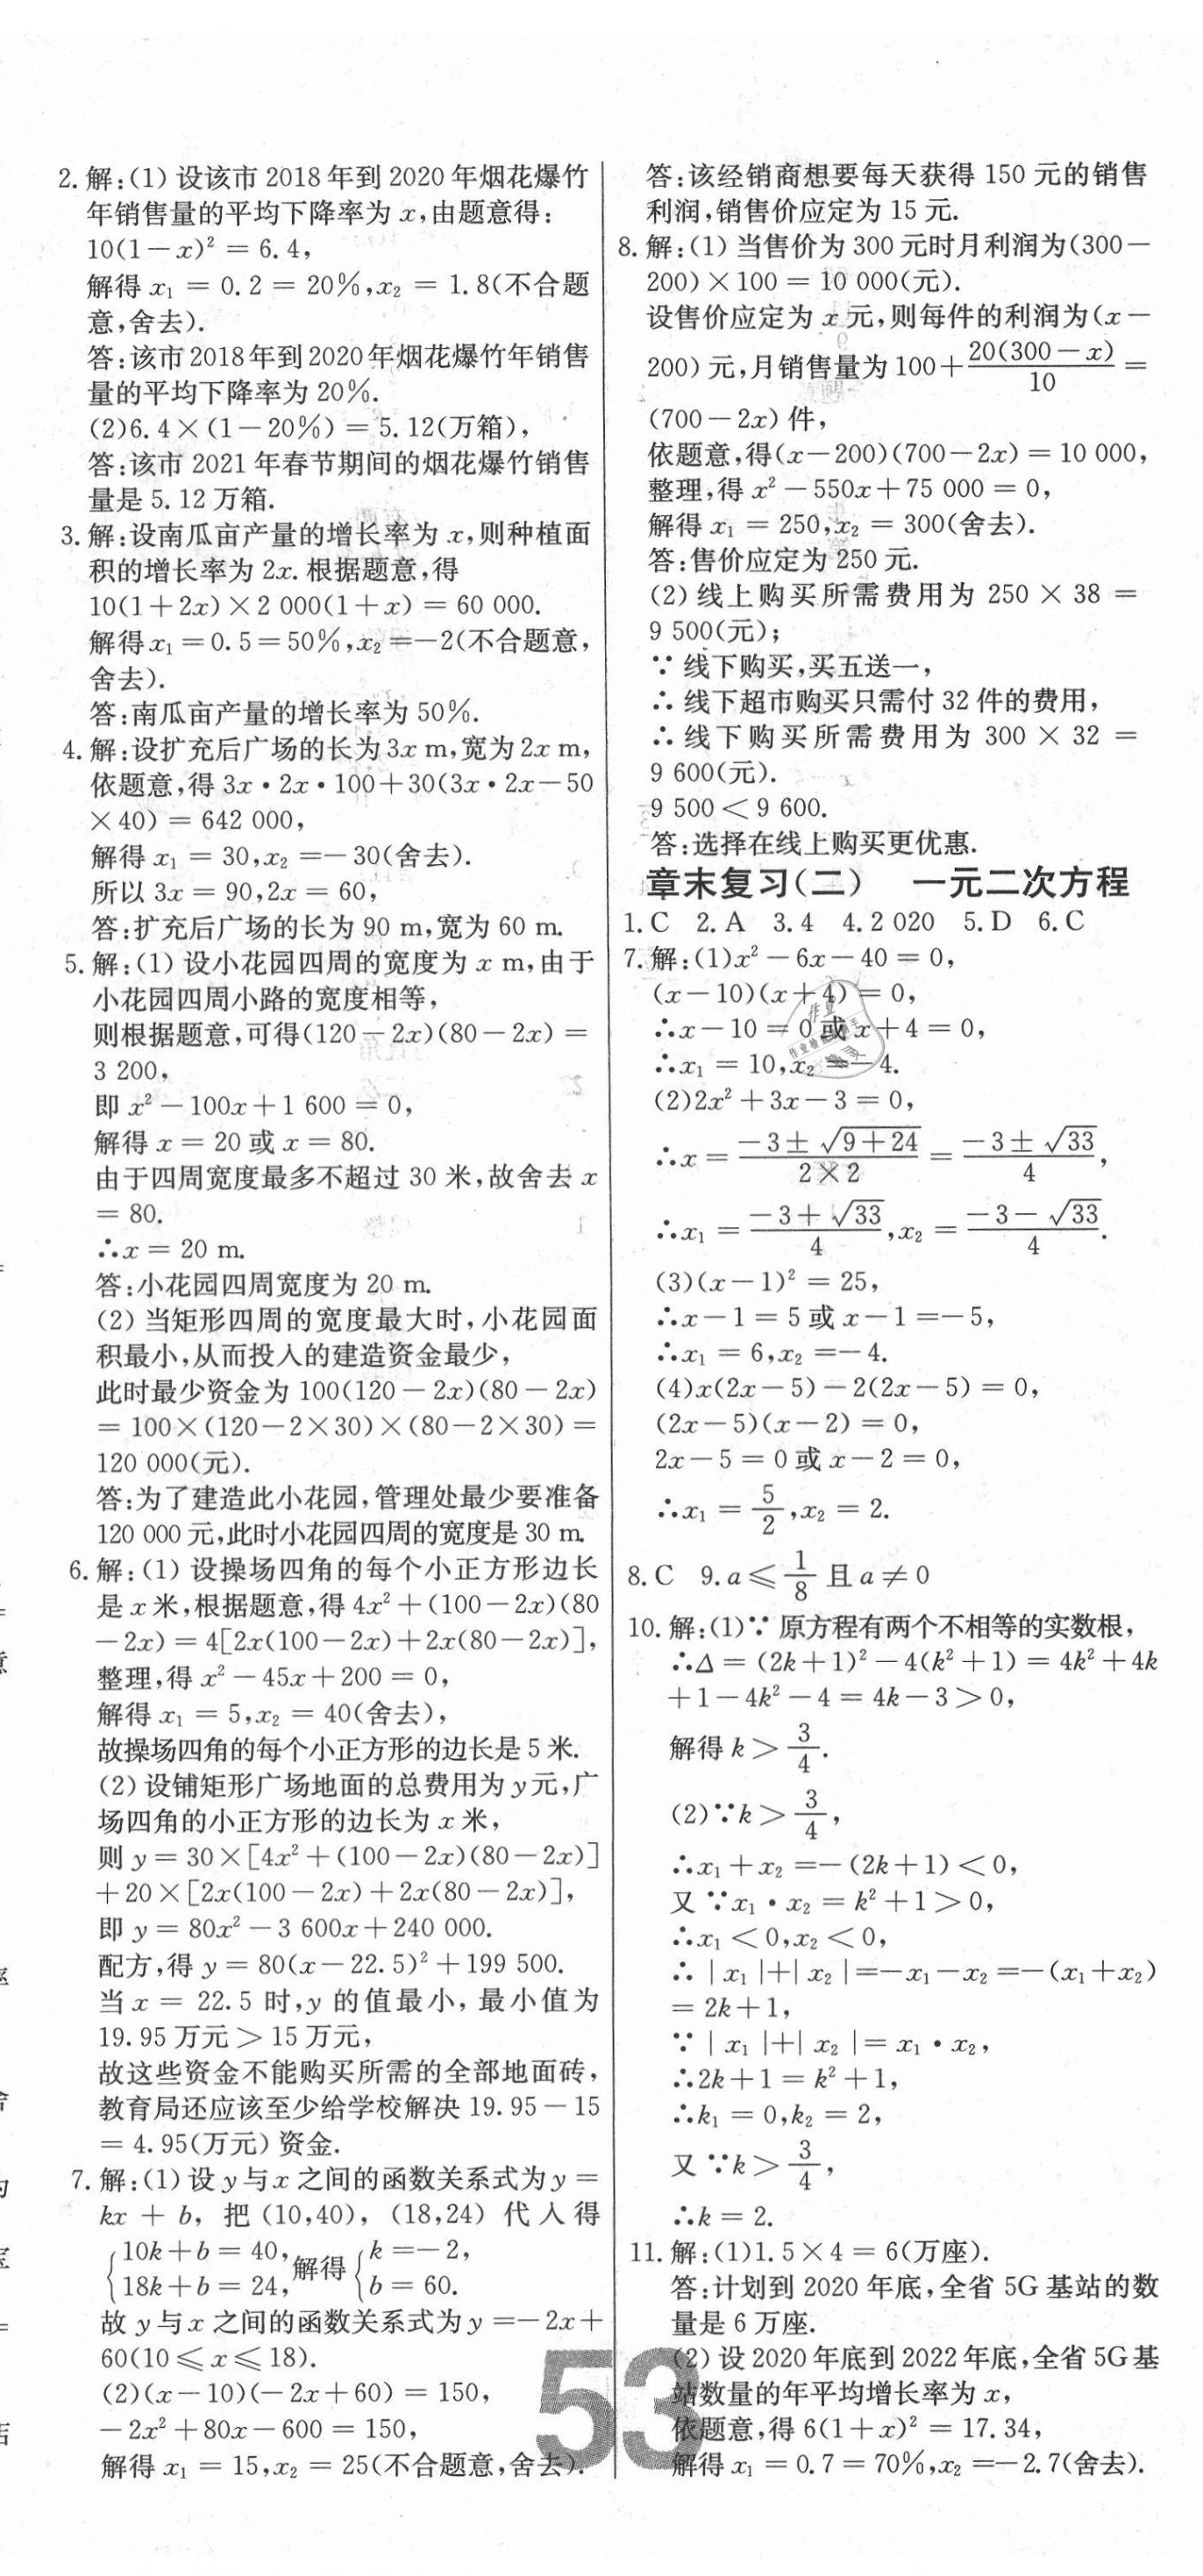 2.解:(1)设该市2018年到2020年烟花爆竹
年销售量的平均下降率为x,由题意得:
10(1-x)²=6.4,
解得x₁=0.2=20%,x₂=1.8(不合题
意,舍去).
答:该市2018年到2020年烟花爆竹年销售
量的平均下降率为20%.
(2)6.4×(1-20%)=5.12(万箱),
答:该市2021年春节期间的烟花爆竹销售
量是5.12万箱.
3.解:设南瓜亩产量的增长率为x,则种植面
积的增长率为2x.根据题意,得
10(1+2x)×2 000(1+x)=60 000.
解得x₁=0.5=50%,x₂=-2(不合题意,
舍去).
答:南瓜亩产量的增长率为50%.
4.解:设扩充后广场的长为3x m,宽为2x m,
依题意,得3x·2x·100+30(3x·2x-50
×40)=642 000,
解得x₁=30,x₂=-30(舍去).
所以3x=90,2x=60,
答:扩充后广场的长为90 m,宽为60 m.
5.解:(1)设小花园四周的宽度为x m,由于
小花园四周小路的宽度相等,
则根据题意,可得(120-2x)(80-2x)=
3 200,
即x²-100x+1 600=0,
解得x=20或x=80.
由于四周宽度最多不超过30米,故舍去x
=80.
∴x=20 m.
答:小花园四周宽度为20 m.
(2)当矩形四周的宽度最大时,小花园面
积最小,从而投入的建造资金最少,
此时最少资金为100(120-2x)(80-2x)
=100×(120-2×30)×(80-2×30)=
120 000(元).
答:为了建造此小花园,管理处最少要准备
120 000元,此时小花园四周的宽度是30 m.
6.解:(1)设操场四角的每个小正方形边长
是x米,根据题意,得4x²+(100-2x)(80
-2x)=4[2x(100-2x)+2x(80-2x)],
整理,得x²-45x+200=0,
解得x₁=5,x₂=40(舍去),
故操场四角的每个小正方形的边长是5米.
(2)设铺矩形广场地面的总费用为y元,广
场四角的小正方形的边长为x米,
则y=30×[4x²+(100-2x)(80-2x)]
+20×[2x(100-2x)+2x(80-2x)],
即y=80x²-3 600x+240 000.
配方,得y=80(x-22.5)²+199 500.
当x=22.5时,y的值最小,最小值为
19.95万元>15万元,
故这些资金不能购买所需的全部地面砖,
教育局还应该至少给学校解决19.95-15
=4.95(万元)资金.
7.解:(1)设y与x之间的函数关系式为y=
kx+b,把(10,40),(18,24)代入得
{10k+b=40, 18k+b=24, 解得{k=-2, b=60.
故y与x之间的函数关系式为y=-2x+
60(10≤x≤18).
(2)(x-10)(-2x+60)=150,
-2x²+80x-600=150,
解得x₁=15,x₂=25(不合题意,舍去).
答:该经销商想要每天获得150元的销售
利润,销售价应定为15元.
8.解:(1)当售价为300元时月利润为(300-
200)×100=10 000(元).
设售价应定为x元,则每件的利润为(x-
200)元,月销售量为100+20(300-x)/10=
(700-2x)件,
依题意,得(x-200)(700-2x)=10 000,
整理,得x²-550x+75 000=0,
解得x₁=250,x₂=300(舍去).
答:售价应定为250元.
(2)线上购买所需费用为250×38=
9 500(元);
∵线下购买,买五送一,
∴线下超市购买只需付32件的费用,
∴线下购买所需费用为300×32=
9 600(元).
9 500<9 600.
答:选择在线上购买更优惠.
章末复习(二) 一元二次方程
1.C 2.A 3.4 4.2 020 5.D 6.C
7.解:(1)x²-6x-40=0,
(x-10)(x+4)=0,
∴x-10=0或x+4=0,
∴x₁=10,x₂=-4.
(2)2x²+3x-3=0,
∴x=(-3±√(9+24))/(2×2)=(-3±√33)/4,
∴x₁=(-3+√33)/4,x₂=(-3-√33)/4.
(3)(x-1)²=25,
∴x-1=5或x-1=-5,
∴x₁=6,x₂=-4.
(4)x(2x-5)-2(2x-5)=0,
(2x-5)(x-2)=0,
2x-5=0或x-2=0,
∴x₁=5/2,x₂=2.
8.C 9.a≤1/8且a≠0
10.解:(1)∵原方程有两个不相等的实数根,
∴Δ=(2k+1)²-4(k²+1)=4k²+4k
+1-4k²-4=4k-3>0,
解得k>3/4.
(2)∵k>3/4,
∴x₁+x₂=-(2k+1)<0,
又∵x₁·x₂=k²+1>0,
∴x₁<0,x₂<0,
∴|x₁|+|x₂|=-x₁-x₂=-(x₁+x₂)
=2k+1,
∵|x₁|+|x₂|=x₁·x₂,
∴2k+1=k²+1,
∴k₁=0,k₂=2,
又∵k>3/4,
∴k=2.
11.解:(1)1.5×4=6(万座).
答:计划到2020年底,全省5G基站的数
量是6万座.
(2)设2020年底到2022年底,全省5G基
站数量的年平均增长率为x,
依题意,得6(1+x)²=17.34,
解得x₁=0.7=70%,x₂=-2.7(舍去).
53